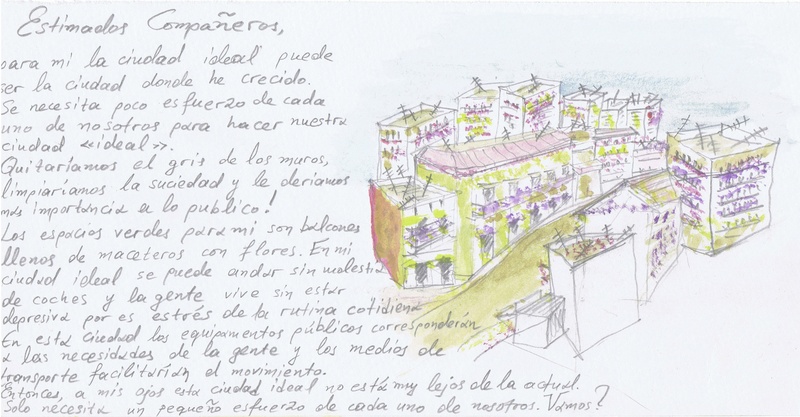 Estimados Compañeros,
para mi la ciudad ideal puede
ser la ciudad donde he crecido.
Se necesita poco esfuerzo de cada
uno de nosotros para hacer nuestra
ciudad «ideal».
Quitaríamos el gris de los muros,
limpiaríamos la suciedad y le deriamos
más importancia a lo publico!
Los espacios verdes para mi son balcones
llenos de maceteros con flores. En mi
ciudad ideal se puede andar sin molestia
de coches y la gente vive sin estar
depresiva por es estrés de la rutina cotidiena
En esta Ciudad los equipamentos públicos corresponderán
a las necesidades de la gente y los medios de
transporte facilitarían el movimiento.
Entonces, a mis ojos esta ciudad ideal no está muy lejos de la actual.
Solo necesita un pequeño esfuerzo de cada uno de nosotros. Vamos?